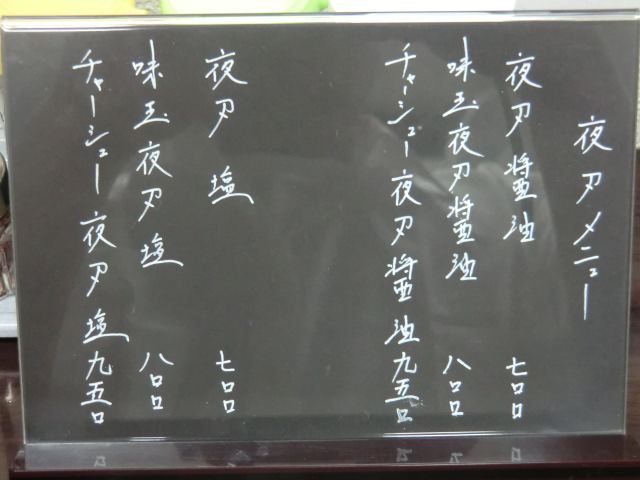 夜刃メニュー
夜刃醤油 七〇〇
味玉夜刃醤油 八〇〇
チャーシュー夜刃醤油 九五〇
夜刃 塩 七〇〇
味玉夜刃塩 八〇〇
チャーシュー夜刃塩 九五〇